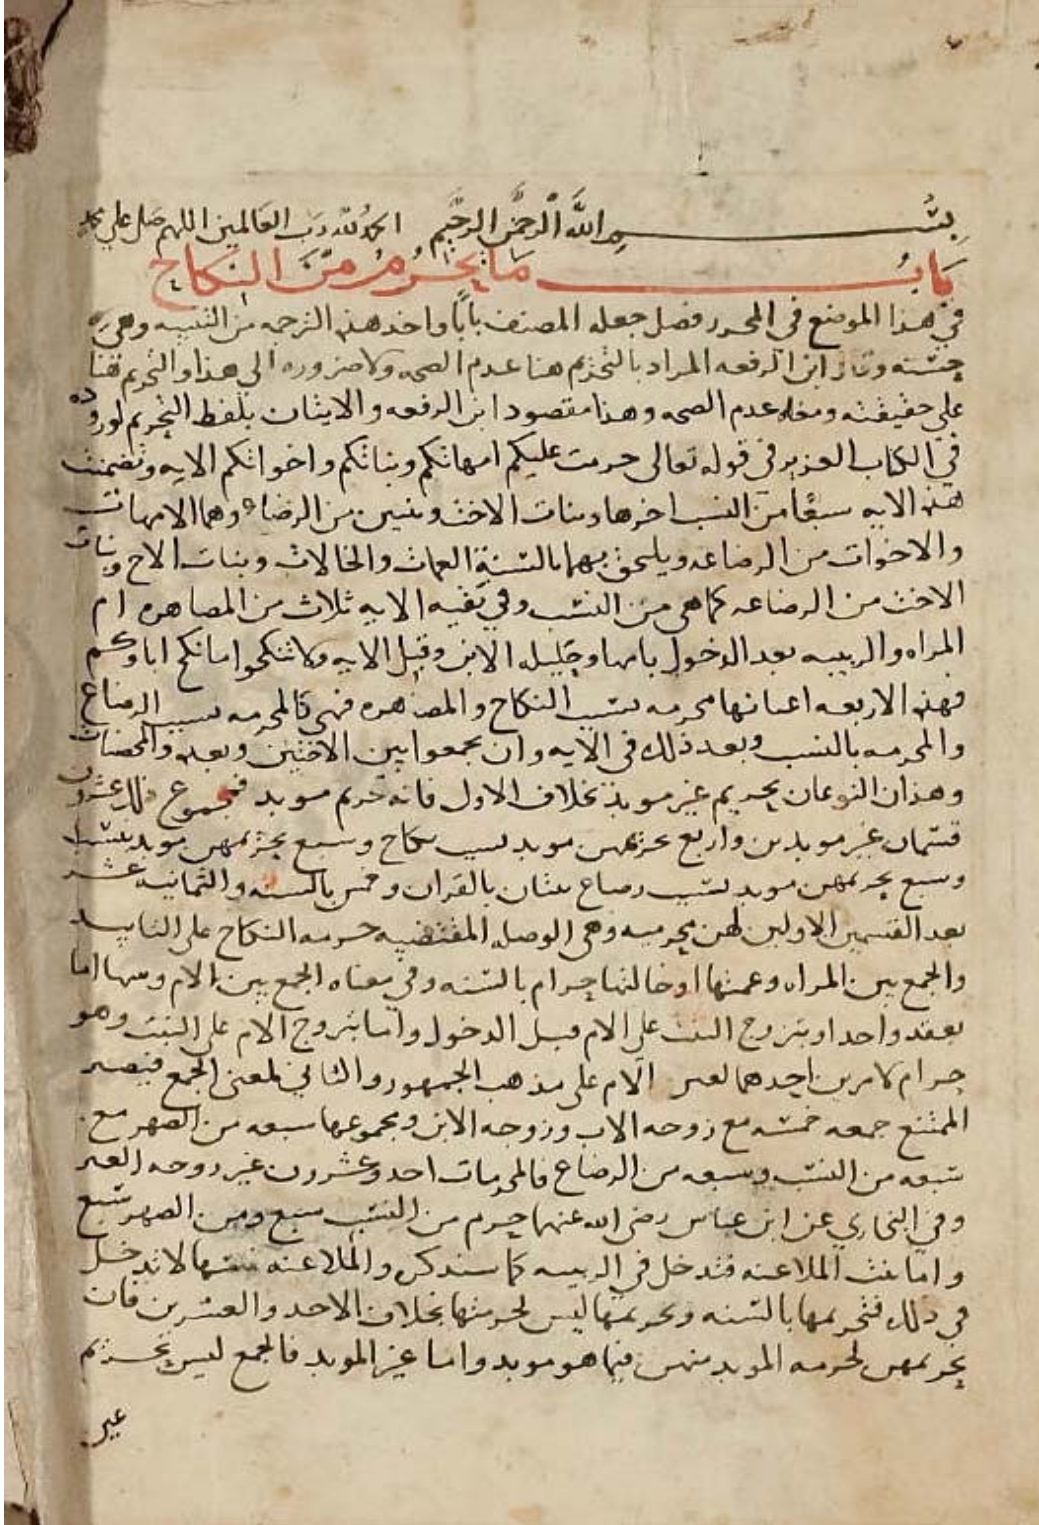 بسم الله الرحمن الرحيم الحمد لله رب العالمين اللهم صل على محمد
باب ما يحرم من النكاح
في هذا الموضع في المحرر فصل جعله المصنف بابا واخذ هذه الترجمة من التنبيه وهي
حسنه وقال ابن الرفعه المراد بالتحريم هنا عدم الصحه ولا ضروره الى هذا والتحريم هنا
على حقيقته ومعناه عدم الصحه وهذا مقصود ابن الرفعه والاتيان بلفظ التحريم لوروده
في الكتاب العزيز في قوله تعالى حرمت عليكم امهاتكم وبناتكم واخواتكم الايه وتضمنت
هذه الايه سبعا من النسب اخرها وبنات الاخت وثنتين من الرضاع وهما الامهات
والاخوات من الرضاعه ويلحق بهما بالسنة العمات والخالات وبنات الاخ وبنات
الاخت من الرضاعه كما هي من النسب وفي بقيه الايه ثلاث من المصاهره ام
المراه والربيبه بعد الدخول بامها وحليله الابن وقبل الايه ولا تنكحوا ما نكح اباوكم
فهذه الاربعه اعيانها محرمه بسبب النكاح والمصاهره فهي كالمحرمه بسبب الرضاع
والمحرمه بالنسب وبعد ذلك في الايه وان تجمعوا بين الاختين وبعده والمحصنات
وهذان النوعان تحريم غير موبد بخلاف الاول فانه تحريم موبد فمجموع ذلك عشرون
قسمان غير موبدين واربع تحريمهن موبد بسبب نكاح وسبع تحريمهن موبد بنسب
وسبع تحريمهن موبد بسبب رضاع ثنتان بالقران وخمس بالسنه والثمانيه عشر
بعد القسمين الاولين لهن محرميه وهي الوصله المقتضيه حرمه النكاح على التابيد
والجمع بين المراه وعمتها او خالتها حرام بالسنه وفي معناه الجمع بين الام وبنتها اما
بعقد واحد او بتزوج البنت على الام قبل الدخول واما بتزوج الام على البنت وهو
حرام لامرين احدهما لعين الام على مذهب الجمهور والثاني لمعنى الجمع فيصير
الممتنع جمعه خمسه مع زوجه الاب وزوجه الابن ومجموعها سبعه من الصهر مع
سبعه من النسب وسبعه من الرضاع فالمحرمات احد وعشرون غير زوجه الغير
وفي البخاري عن ابن عباس رضي الله عنهما حرم من النسب سبع ومن الصهر سبع
واما بنت الملاعنه فتدخل في الربيبه كما سنذكره والملاعنه نفسها لا تدخل
في ذلك فتحريمها بالسنه وتحريمها ليس لحرمتها بخلاف الاحد والعشرين فان
تحريمهن لحرمه الموبد منهن فيما هو موبد واما غير الموبد فالجمع ليس تحريم
عين